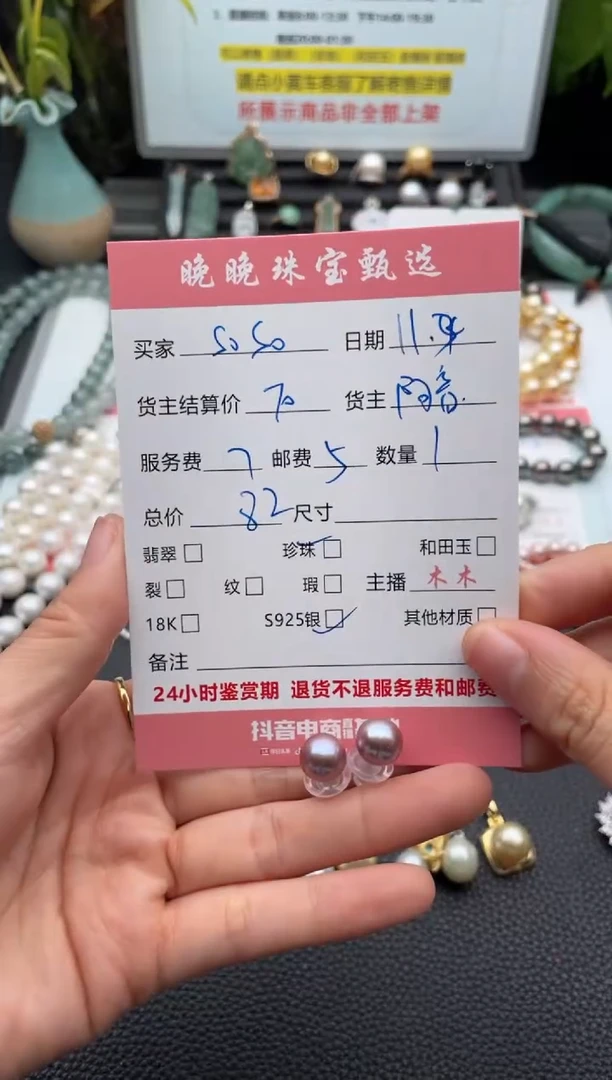 请点小黄车客服了解寄售详情
所展示商品非全部上架
晚晚珠宝甄选
买家 SoSo 日期 11.
货主结算价 70 货主
服务费 7 邮费 5 数量 1
总价 82 尺寸
翡翠 珍珠 和田玉
裂 纹 瑕 主播 木木
18K S925银 其他材质
备注
24小时鉴赏期 退货不退服务费和邮费
抖音电商